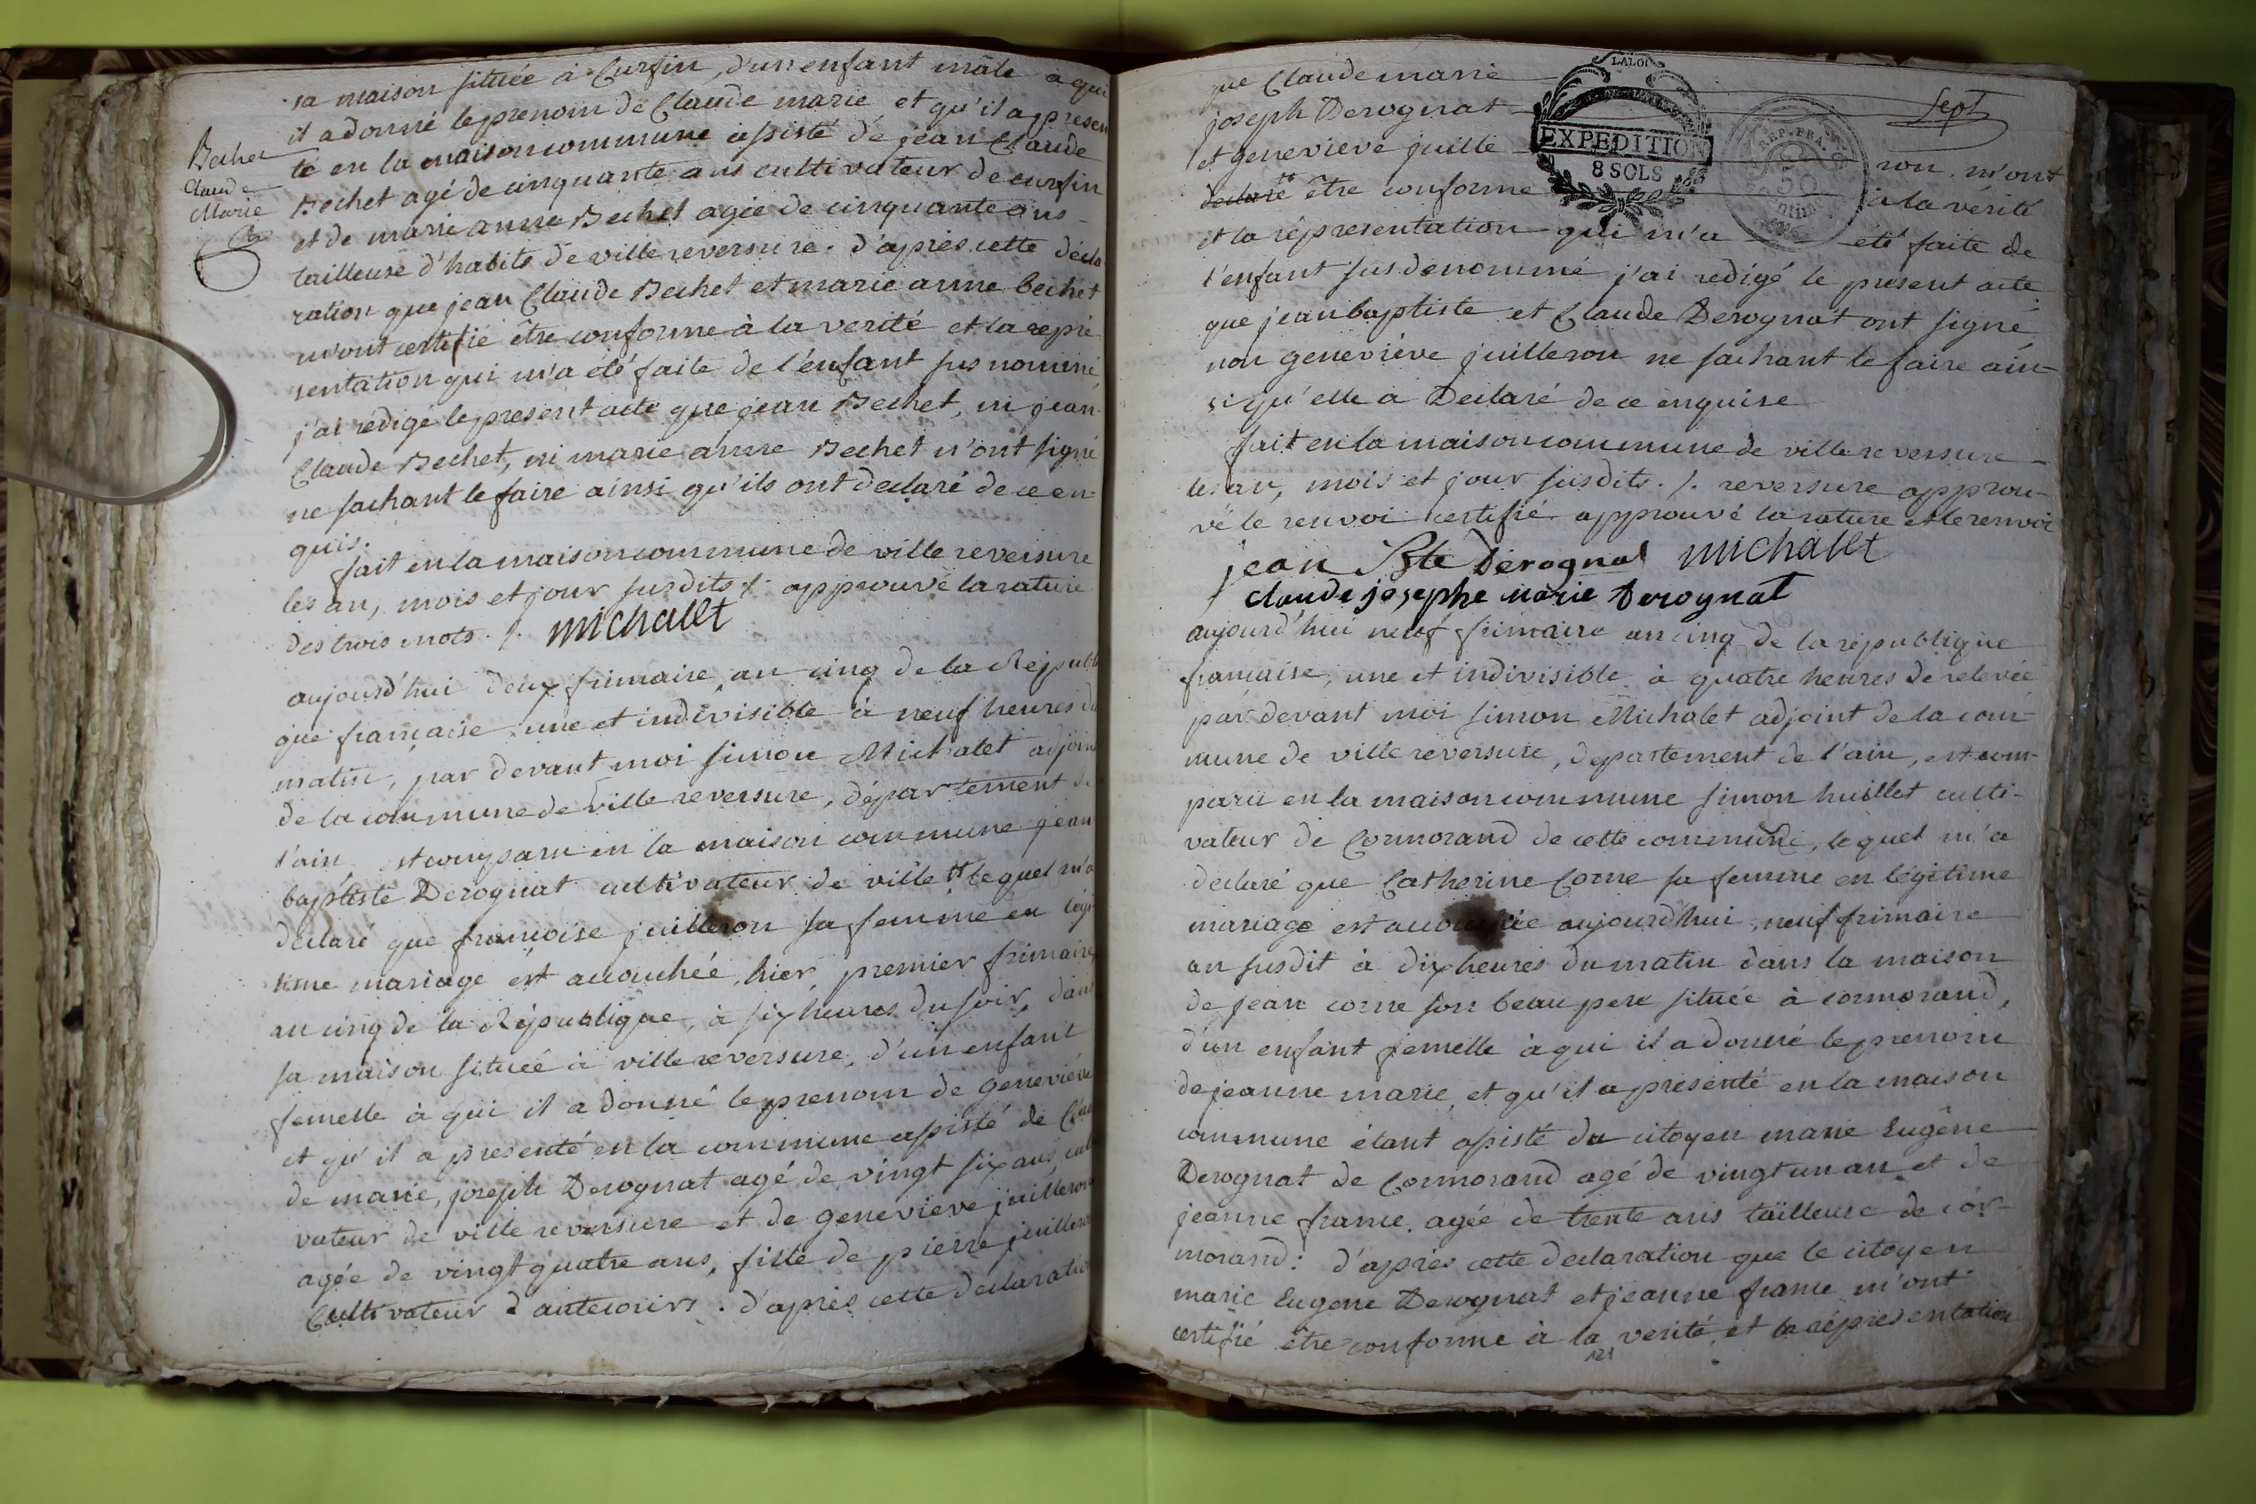 sa maison située à Curfin, d'un enfant mâle a qui
il a donné le prenom de Claude marie et qu'il a presen
té en la maison commune assisté de jean Claude
Bechet agé de cinquante ans cultivateur de curfin
et de marie anne Bechet agée de cinquante ans
tailleuse d'habits de ville reversure. d'après cette décla
ration que jean Claude Bechet et marie anne bechet
m'ont certifié être conforme à la verité et la repré
sentation qui m'a été faite de l'enfant sus nommé
j'ai rédigé le present acte que jean Bechet, ni jean
Claude Bechet, ni marie anne Bechet n'ont signé
ne sachant le faire ainsi qu'ils ont declaré de ce en
quis.
fait en la maison commune de ville reversure
les an, mois et jour susdits ./. approuvé la rature
des trois mots ./. michalet
Bechet
Claude
Marie
aujourd'hui deux frimaire an cinq de la Républi
que française une et indivisible à neuf heures du
matin, par devant moi simon Michalet adjoint
de la commune de ville reversure, département de
l'ain, est comparu en la maison commune jean
baptiste Derognat cultivateur de ville # lequel m'a
declaré que françoise juilleron sa femme en légi
time mariage est accouchée, hier, premier frimaire
an cinq de la République, à six heures du soir, dans
sa maison située à ville reversure, d'un enfant
femelle à qui il a donné le prenom de geneviéve
et qu'il a presenté en la commune assisté de Clau
de marie, joseph Derognat agé de vingt six ans culti
vateur de ville reversure et de genevieve juilleron
agée de vingt quatre ans, fille de pierre juilleron
Cultivateur d'antecourt. d'après cette declaration
que Claude marie
joseph Derognat
et genevieve juille
ron m'ont
declaré être conforme
à la vérité
et la répresentation qui m'a été faite de
l'enfant susdenommé j'ai redigé le present acte
que jean baptiste et Claude Derognat ont signé
non geneviéve juilleron ne sachant le faire ain-
si qu'elle a Declaré de ce enquise
fait en la maison commune de ville reversure
les an, mois et jour susdits. ./. reversure approu-
vé le renvoi certifié approuvé la rature et le renvoi
jean Bte Derognat michalet
claude josephe marie Derognat
Sept
LA LOI
EXPEDITION
8 SOLS
REP. FRA.
50
aujourd'hui neuf frimaire an cinq de la république
française, une et indivisible à quatre heures de relevée
par devant moi simon Michalet adjoint de la com-
mune de ville reversure, departement de l'ain, est com-
paru en la maison commune simon huillet culti-
vateur de Cormorand de cette commune, lequel m'a
declaré que Catherine Corne sa femme en légitime
mariage est accouchée aujourd'hui, neuf frimaire
an susdit à dix heures du matin dans la maison
de jean corne son beau pere située à cormorand,
d'un enfant femelle à qui il a donné le prenom
de jeanne marie, et qu'il a presenté en la maison
commune étant assisté du citoyen marie Eugêne
Derognat de Cormorand agé de vingt un an et de
jeanne france agée de trente ans tailleuse de cor-
morand: d'après cette declaration que le citoyen
marie Eugene Derognat et jeanne france m'ont
certifié être conforme à la verité, et la répresentation
121